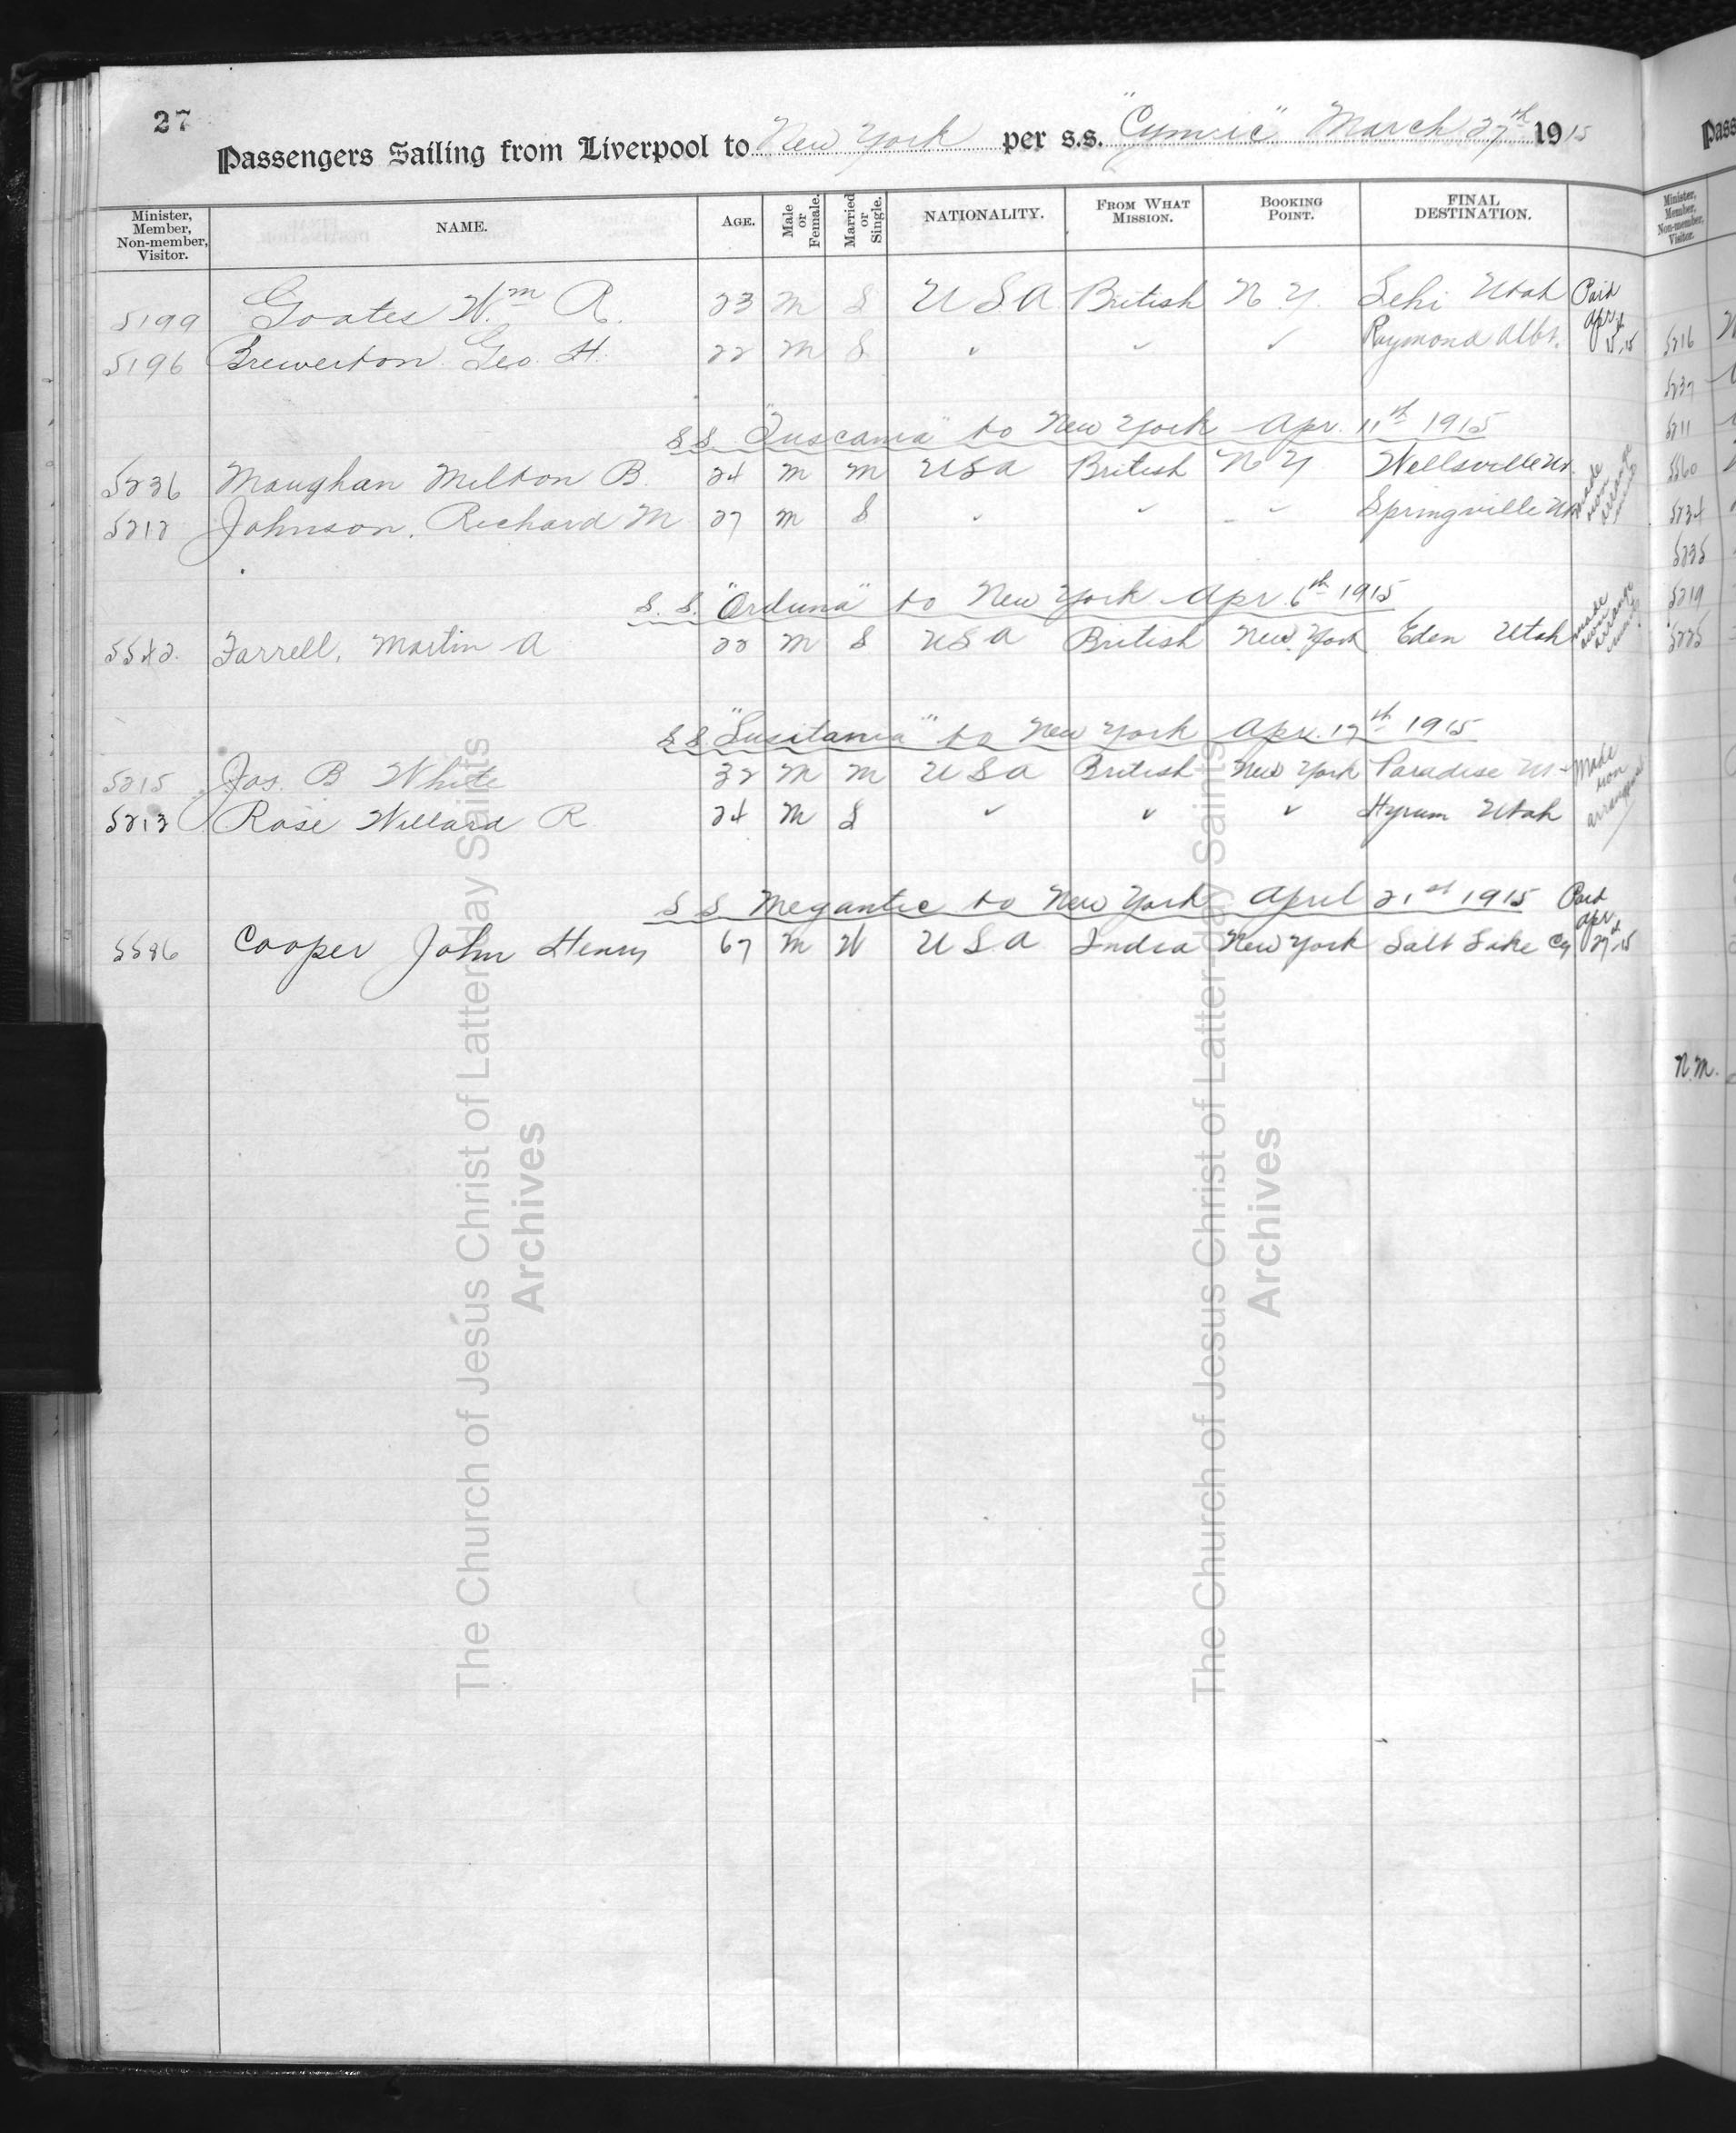 27
Passengers Sailing from Liverpool to New York per s.s. "Cymric" March 27th 1915
Minister, Member, Non-member, Visitor. NAME. AGE. Male or Female. Married or Single. NATIONALITY. FROM WHAT MISSION. BOOKING POINT. FINAL DESTINATION.
5199 Goates Wm R. 23 M S USA British N.Y. Lehi Utah Paid Apr
5196 Brewerton Geo. H. 22 M S " " " Raymond Alb. 15-15
SS "Tuscania" to New York Apr. 11th 1915
5236 Maughan Milton B. 24 M M USA British N Y Wellsville Ut.
5212 Johnson, Richard M 27 M S " " " Springville Ut made own arrange
S.S. "Orduna" to New York Apr. 6th 1915
5542. Farrell, Martin A 22 M S USA British New York Eden Utah made own arrange
SS "Lusitania" to New York Apr. 17th 1915
5215 Jos. B White 32 M M USA British New York Paradise Ut Made own
5213 Rose Willard R 24 M S " " " Hyrum Utah
S S Megantic to New York April 21st 1915 Paid Apr
5586 Cooper John Henry 67 M W USA India New York Salt Lake Cy 27-15
The Church of Jesus Christ of Latter-day Saints
Archives
The Church of Jesus Christ of Latter-day Saints
Archives
Pass
Minister, Member, Non-member, Visitor.
5216
5237
5211
5560
5234
5235
5219
5225
N.M.